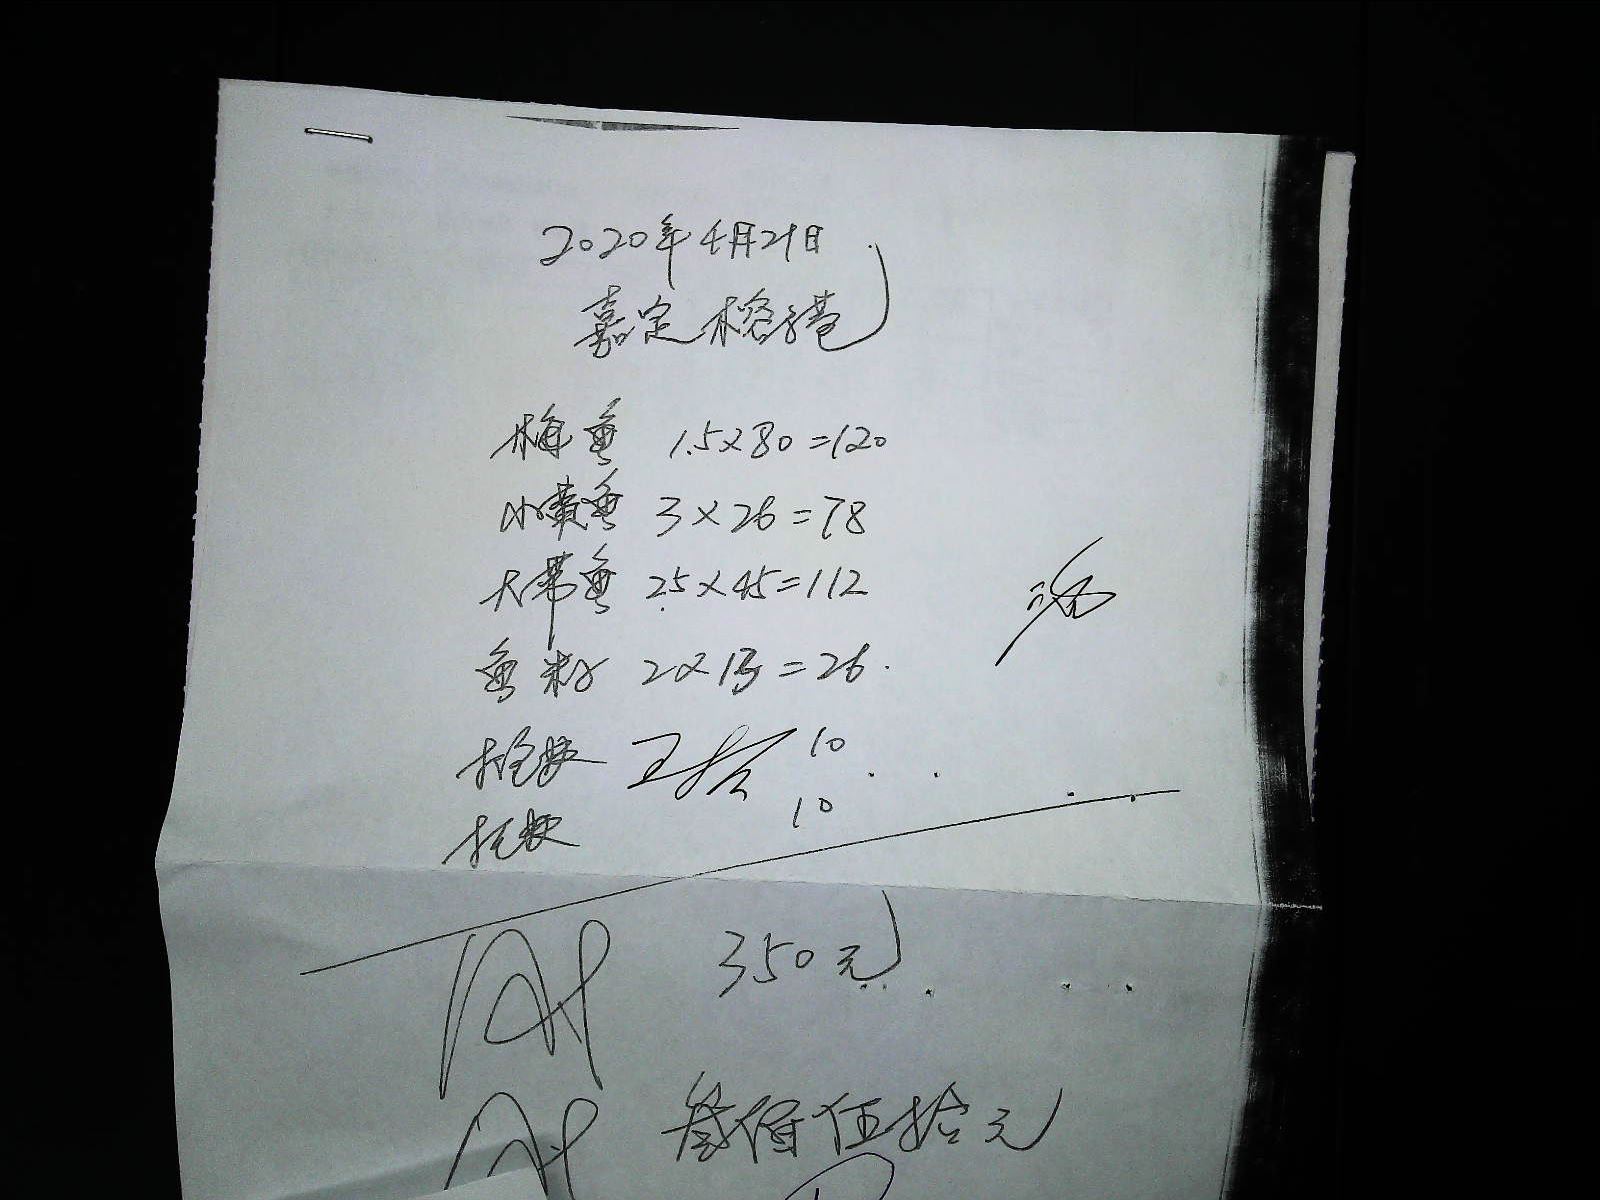 2020年4月21日
嘉定
梅鱼 1.5×80=120
小黄鱼 3×26=78
大带鱼 2.5×45=112
鱼 2×13=26.
10
10
350元
叁佰伍拾元